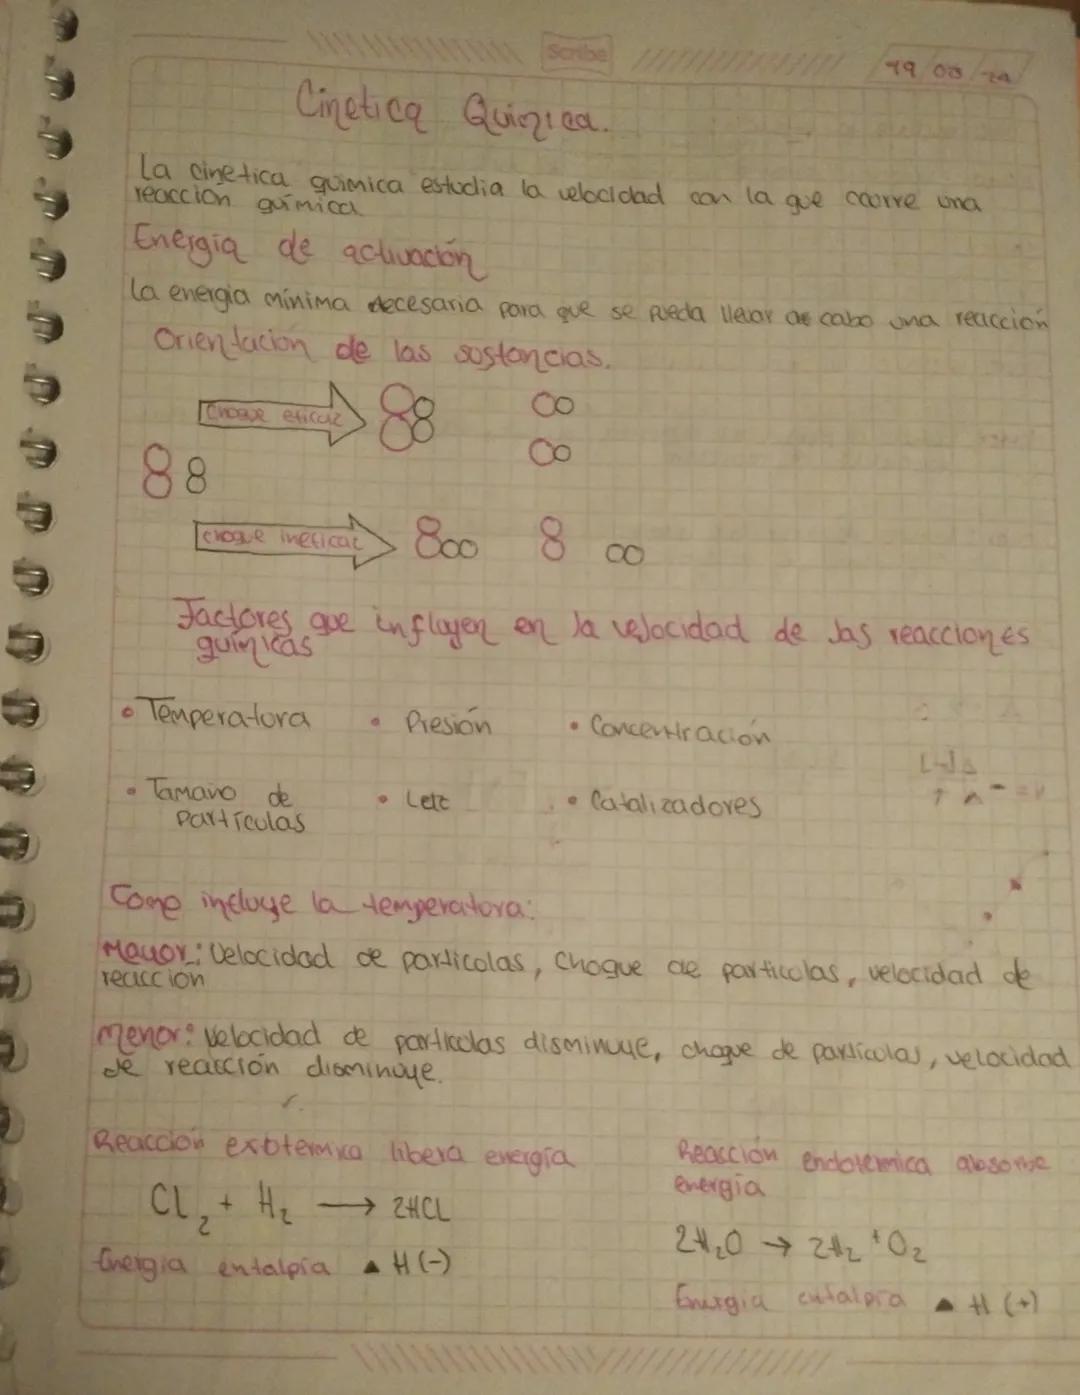 Scribe
19 08 24
Cinetica Quimica.
La cinetica quimica estudia la velocidad con la que ocorre una
reaccion química
Energia de activación
La energia mínima necesaria para que se pueda llevar a cabo una reacción
Orientacion de las sostancias.
Choque eficaz
choque ineficaz
Factores que influyen en la velocidad de las reacciones
químicas
• Temperatura • Presión • Concentración
• Tamaño de
Partículas
• Catalizadores
Como incluye la temperatura:
Mayor: Velocidad de particolas, Choque de particulas, velocidad de
reaccion
Menor: Velocidad de particolas disminuye, choque de particulas, velocidad
de reacción disminuye.
Reacción exotermica libera energía
Cl₂ + H₂ → 2HCL
Energia entalpia ▲ H (-)
Reacción endotermica absorbe
energía
2H₂O → 2H₂ + O₂
Energia entalpia ▲ H (+)